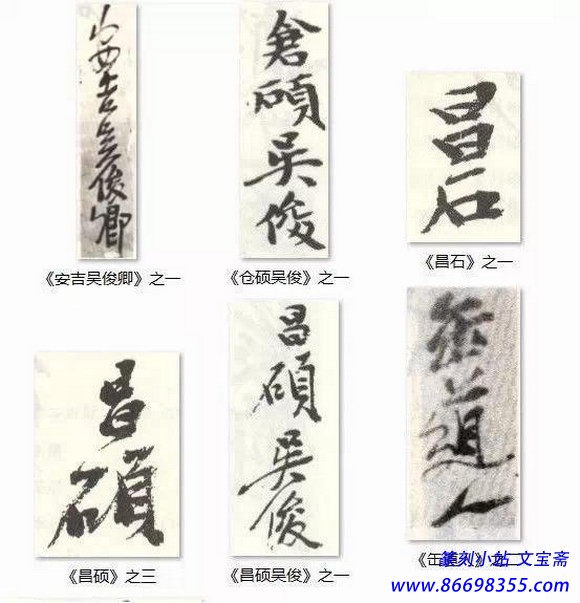 安吉吳俊卿
倉碩吳俊
昌石
《安吉吴俊卿》之一
《仓硕吴俊》之一
《昌石》之一
昌碩
昌碩吳俊
缶道人
《昌硕》之三
《昌硕吴俊》之一
《缶道人》之二
篆刻小站 文宝斋
www.86698355.com